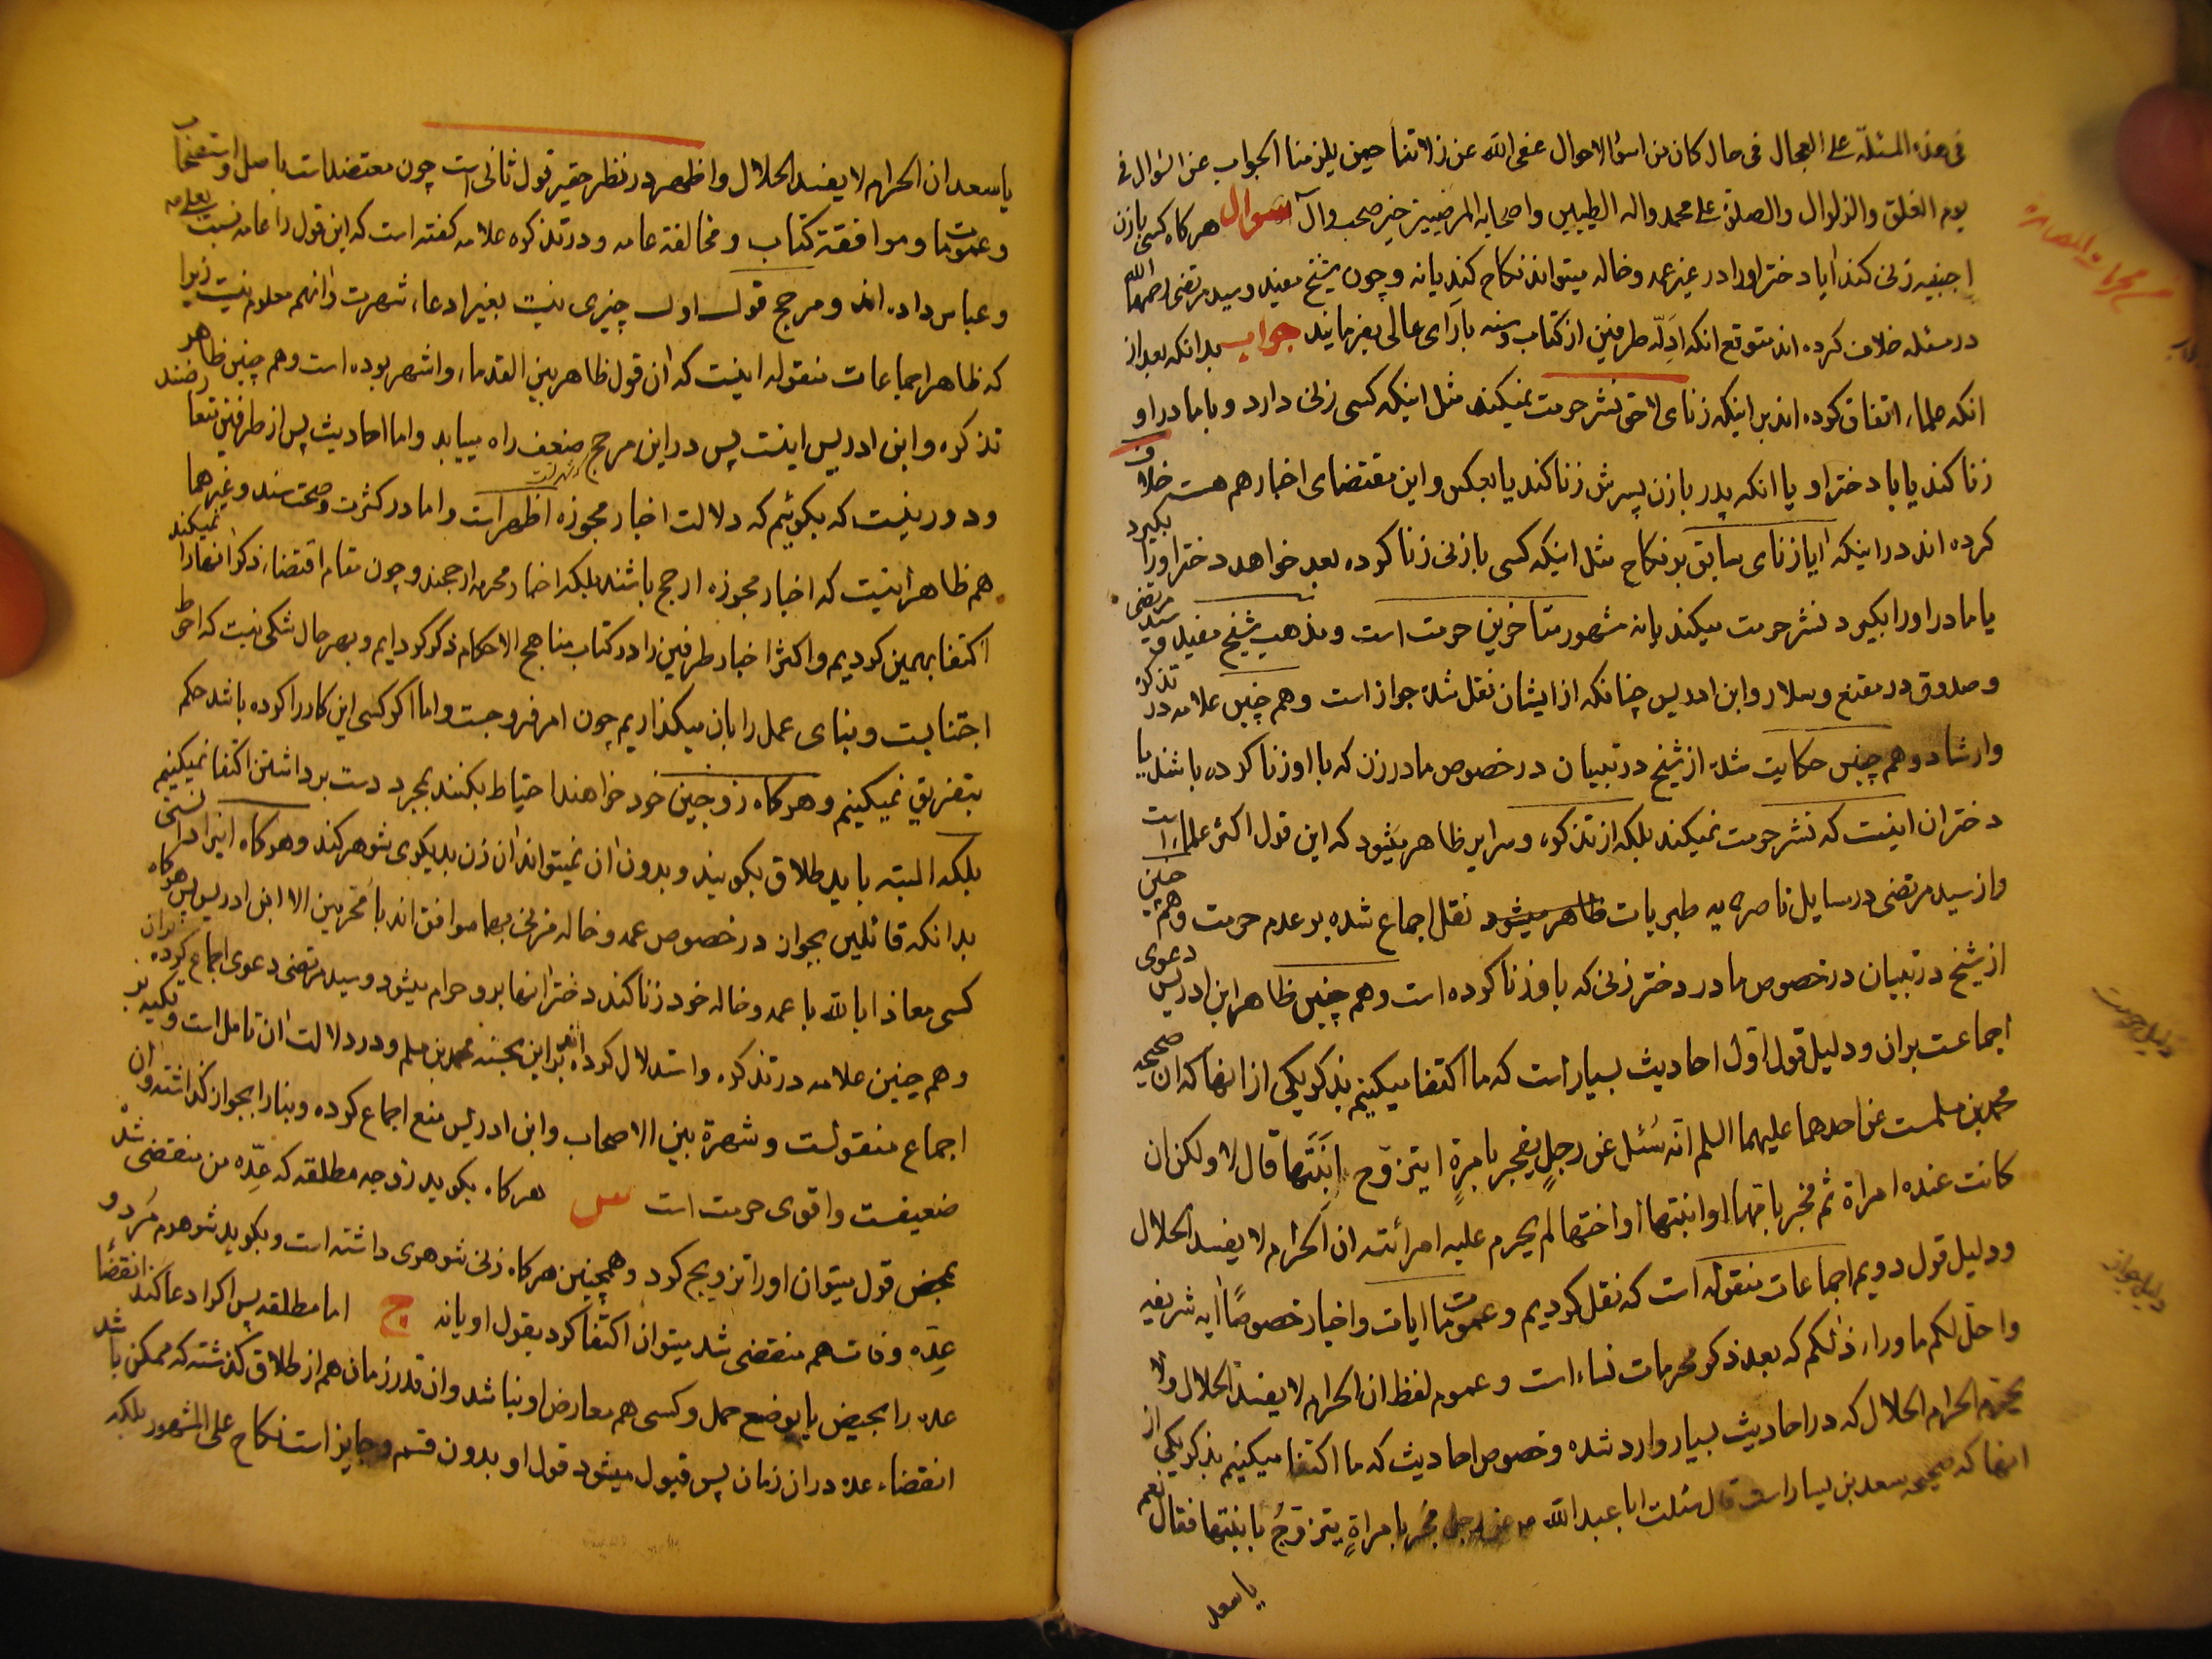 فی هذه المسئلة علی العجال فی حال کان من اسؤ الاحوال عفی الله عن زلاتنا حین یلزمنا الجواب عن السؤال فی
یوم القلق والزلزال والصلوة علی محمد واله الطیبین واصحابه المرضیین خیر صحب وآل سوال هرکاه کسی بازن
اجنبیه زنی کند ایا دختر اورا در غیر عمه وخاله میتواند نکاح کند یا نه وچون شیخ مفید وسید مرتضی رحمهما الله
در مسئله خلاف کرده اند متوقع انکه ادله طرفین از کتاب وسنه بارای عالی بفرمایند جواب بدانکه بعد از
انکه علماء اتفاق کرده اند بر اینکه زنای لاحق نشر حرمت نمیکند مثل اینکه کسی زنی دارد وبا مادر او
زنا کند یا با دختر او یا انکه پدر بازن پسرش زنا کند یا بعکس واین مقتضای اخبار هم هست خلاف
کرده اند در اینکه ایا زنای سابق بر نکاح مثل اینکه کسی بازنی زنا کرده بعد خواهد دختر اورا بکیرد
یا مادر اورا بکیرد نشر حرمت میکند یا نه مشهور متاخرین حرمت است ومذهب شیخ مفید وسید مرتضی
وصدوق در مقنع وسلار وابن ادریس چنانکه از ایشان نقل شده جواز است وهم چنین علامه در تذکره
وارشاد وهم چنین حکایت شده از شیخ در تبیان در خصوص مادر زن که با او زنا کرده باشد یا
دختران اینست که نشر حرمت نمیکند بلکه از تذکره وسرایر ظاهر میشود که این قول اکثر علماء است
واز سید مرتضی در مسایل ناصریه طبریات ظاهر میشود نقل اجماع شده بر عدم حرمت وهم چنین
از شیخ در تبیان در خصوص مادر ودختر زنی که با او زنا کرده است وهم چنین ظاهر ابن ادریس دعوی
اجماعست بران ودلیل قول اول احادیث بسیار است که ما اکتفا میکنیم بذکر یکی از انها که ان صحیحه
محمد بن مسلمست عن احدهما علیهما السلم انه سئل عن رجل یفجر بامرة ایتزوج ابنتها قال لا ولکن ان
کانت عنده امراة ثم فجر بامها او ابنتها او اختها لم یحرم علیه امرأته ان الحرام لا یفسد الحلال
ودلیل قول دویم اجماعات منقوله است که نقل کردیم وعمومات ایات واخبار خصوصا ایه شریفه
واحل لکم ما وراء ذلکم که بعد ذکر محرمات نساء است وعموم لفظ ان الحرام لا یفسد الحلال ولا
یحرم الحرام الحلال که در احادیث بسیار وارد شده وخصوص احادیث که ما اکتفا میکنیم بذکر یکی از
انها که صحیحه سعد بن یسار است قال سئلت ابا عبد الله عن رجل فجر بامراة یتزوج بابنتها فقال نعم
یا سعد
دلیل حرمت
دلیل جواز
یا سعد ان الحرام لا یفسد الحلال واظهر در نظر حقیر قول ثانی است چون معتضد است باصل واستصحاب
وعمومات وموافقة کتاب ومخالفة عامه ودر تذکره علامه کفته است که این قول را عامه نسبت بعلی ع
وعباس داده اند ومرجح قول اول چیزی نیست بغیر ادعاء شهرت وانهم معلوم نیست زیرا
که ظاهر اجماعات منقوله اینست که ان قول ظاهر بین القدماء واشهر بوده است وهم چنین ظاهر
تذکره وابن ادریس اینست پس در این مرجح ضعف راه مییابد واما احادیث پس از طرفین متعارضند
ودور نیست که بکوئیم که دلالت اخبار مجوزه اظهر است واما در کثرت وصحت سند وغیرهما
هم ظاهر انیت که اخبار مجوزه ارجح باشند بلکه اخبار محرمه ارجحند وچون مقام اقتضاء ذکر انها را نمیکند
اکتفا بهمین کردیم واکثر اخبار طرفین را در کتاب مناهج الاحکام ذکر کرده ایم وبهر حال شکی نیست که احوط
اجتنابست وبنای عمل را بان میکذاریم چون امر فروجست واما اکر کسی این کار را کرده باشد حکم
بتفریق نمیکنیم وهرکاه زوجین خود خواهند احتیاط بکنند بمجرد دست برداشتن اکتفا نمیکنیم
بلکه البته باید طلاق بکویند وبدون ان نمیتواند ان زن بدیکری شوهر کند وهرکاه اینرا دانستی
بدانکه قائلین بجواز در خصوص عمه وخاله مزنی بهما موافق اند با محرمین الا ابن ادریس پس هرکاه
کسی معاذا بالله با عمه وخاله خود زنا کند دختر انها بر او حرام میشود وسید مرتضی دعوی اجماع کرده بران
وهم چنین علامه در تذکره واستدلال کرده اند بر این بحسنه محمد بن مسلم ودر دلالت ان تامل است وتکیه بر
اجماع منقولست وشهرة بین الاصحاب وابن ادریس منع اجماع کرده وبنا را بجواز کذاشته وان
ضعیفست واقوی حرمت است س هرکاه بکوید زوجه مطلقه که عده من منقضی شد
بمحض قول میتوان اورا تزویج کرد وهمچنین هرکاه زنی شوهری داشته است وبکوید شوهرم مرد و
عده وفات هم منقضی شد میتوان اکتفا کرد بقول او یا نه ج اما مطلقه پس اکر ادعا کند انقضاء
عده را بحیض یا بوضع حمل وکسی هم معارض او نباشد وان قدر زمان هم از طلاق کذشته که ممکن باشد
انقضاء عده در ان زمان پس قبول میشود قول او بدون قسم وجایز است نکاح علی المشهور بلکه